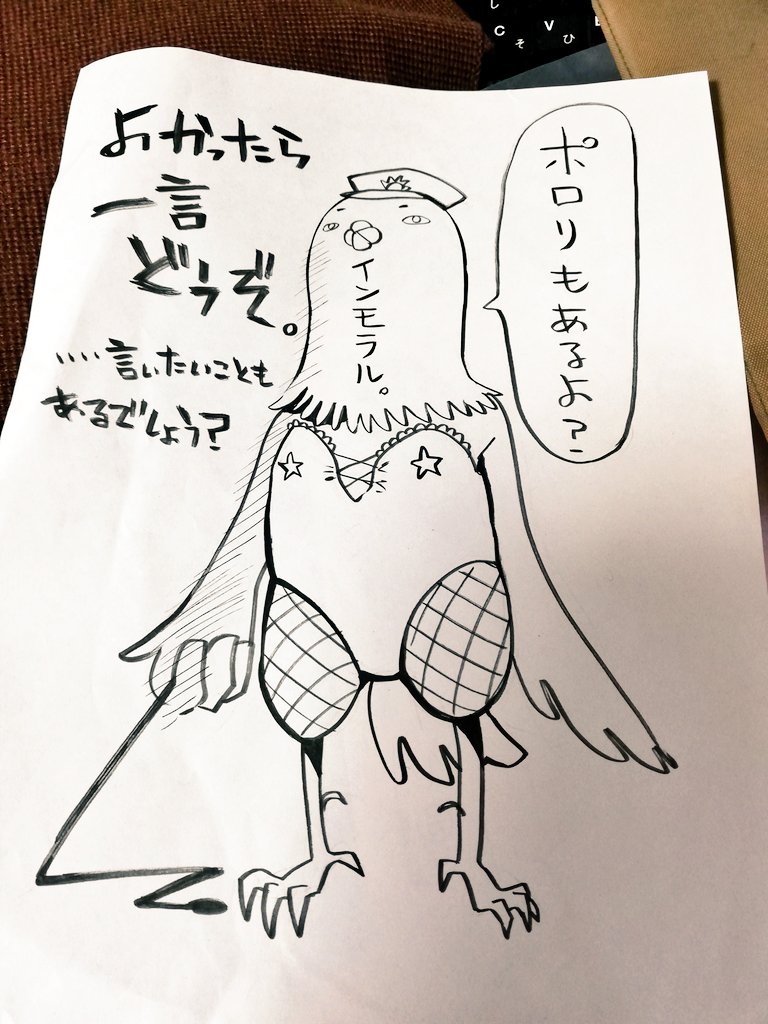 よかったら
一言
どうぞ。
....言いたいことも
あるでしょう?
インモラル。
ポロリもあるよ?
し
C
そ
V
ひ